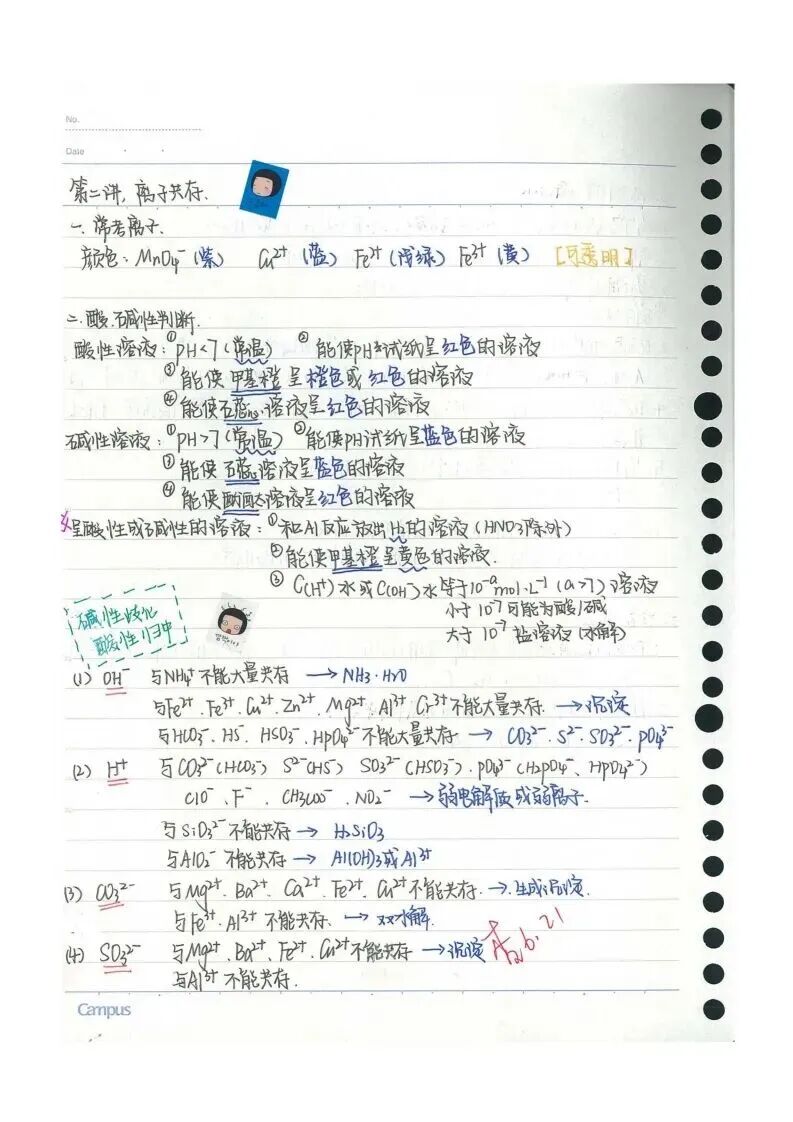 No.
Date
第二讲,离子共存.
一.常考离子.
颜色:MnO4⁻(紫) Cu²⁺(蓝) Fe²⁺(浅绿) Fe³⁺(黄) [可透明]
二.酸.碱性判断.
酸性溶液:①pH<7(常温) ②能使pH试纸呈红色的溶液
③能使甲基橙呈橙色或红色的溶液
④能使石蕊溶液呈红色的溶液
碱性溶液:①pH>7(常温) ②能使pH试纸呈蓝色的溶液
③能使石蕊溶液呈蓝色的溶液
④能使酚酞溶液呈红色的溶液
呈酸性或碱性的溶液:①和Al反应放出H₂的溶液(HNO3除外)
②能使甲基橙呈黄色的溶液.
③C(H⁺)水或C(OH⁻)水等于10⁻ᵃmol·L⁻¹(a>7)溶液
小于10⁻⁷可能为酸/碱
大于10⁻⁷盐溶液(水解)
碱性歧化
酸性归中
(1) OH⁻ 与NH4⁺不能大量共存 →NH3·H2O
与Fe²⁺.Fe³⁺.Cu²⁺.Zn²⁺.Mg²⁺.Al³⁺.Cr³⁺不能大量共存. →沉淀
与HCO3⁻.HS⁻.HSO3⁻.HPO4²⁻不能大量共存 → CO3²⁻.S²⁻.SO3²⁻.PO4³⁻
(2) H⁺ 与CO3²⁻(HCO3⁻) S²⁻(HS⁻) SO3²⁻(HSO3⁻).PO4³⁻(H2PO4⁻、HPO4²⁻)
ClO⁻.F⁻.CH3COO⁻.NO2⁻ →弱电解质或弱离子.
与SiO3²⁻不能共存→ H2SiO3
与AlO2⁻不能共存→ Al(OH)3或Al³⁺
(3) CO3²⁻ 与Mg²⁺.Ba²⁺.Ca²⁺.Fe²⁺.Cu²⁺不能共存.→.生成沉淀.
与Fe³⁺.Al³⁺不能共存. →双水解.
(4) SO3²⁻ 与Mg²⁺.Ba²⁺.Fe²⁺.Cu²⁺不能共存 →沉淀
6.21
与Al³⁺不能共存.
Campus